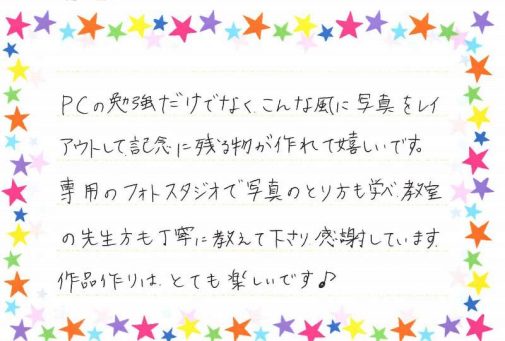 PCの勉強だけでなく、こんな風に写真をレイ
アウトして記念に残る物が作れて嬉しいです。
専用のフォトスタジオで写真のとり方も学べ、教室
の先生方も丁寧に教えて下さり、感謝しています
作品作りは、とても楽しいです♪